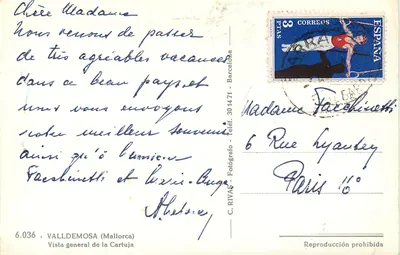 Chère Madame
Nous venons de passer
de très agréables vacances
dans ce beau pays et
nous vous envoyons
notre meilleur souvenir
ainsi qu'à Monsieur
Facchinetti et Marie-Ange
6.036 - VALLDEMOSA (Mallorca)
Vista general de la Cartuja
C. RIVAS - Fotógrafo - Teléf. 30 14 71 - Barcelona
8 PTAS CORREOS
ESPAÑA
Madame Facchinetti
6 Rue Lyautey
Paris 16
Reproducción prohibida